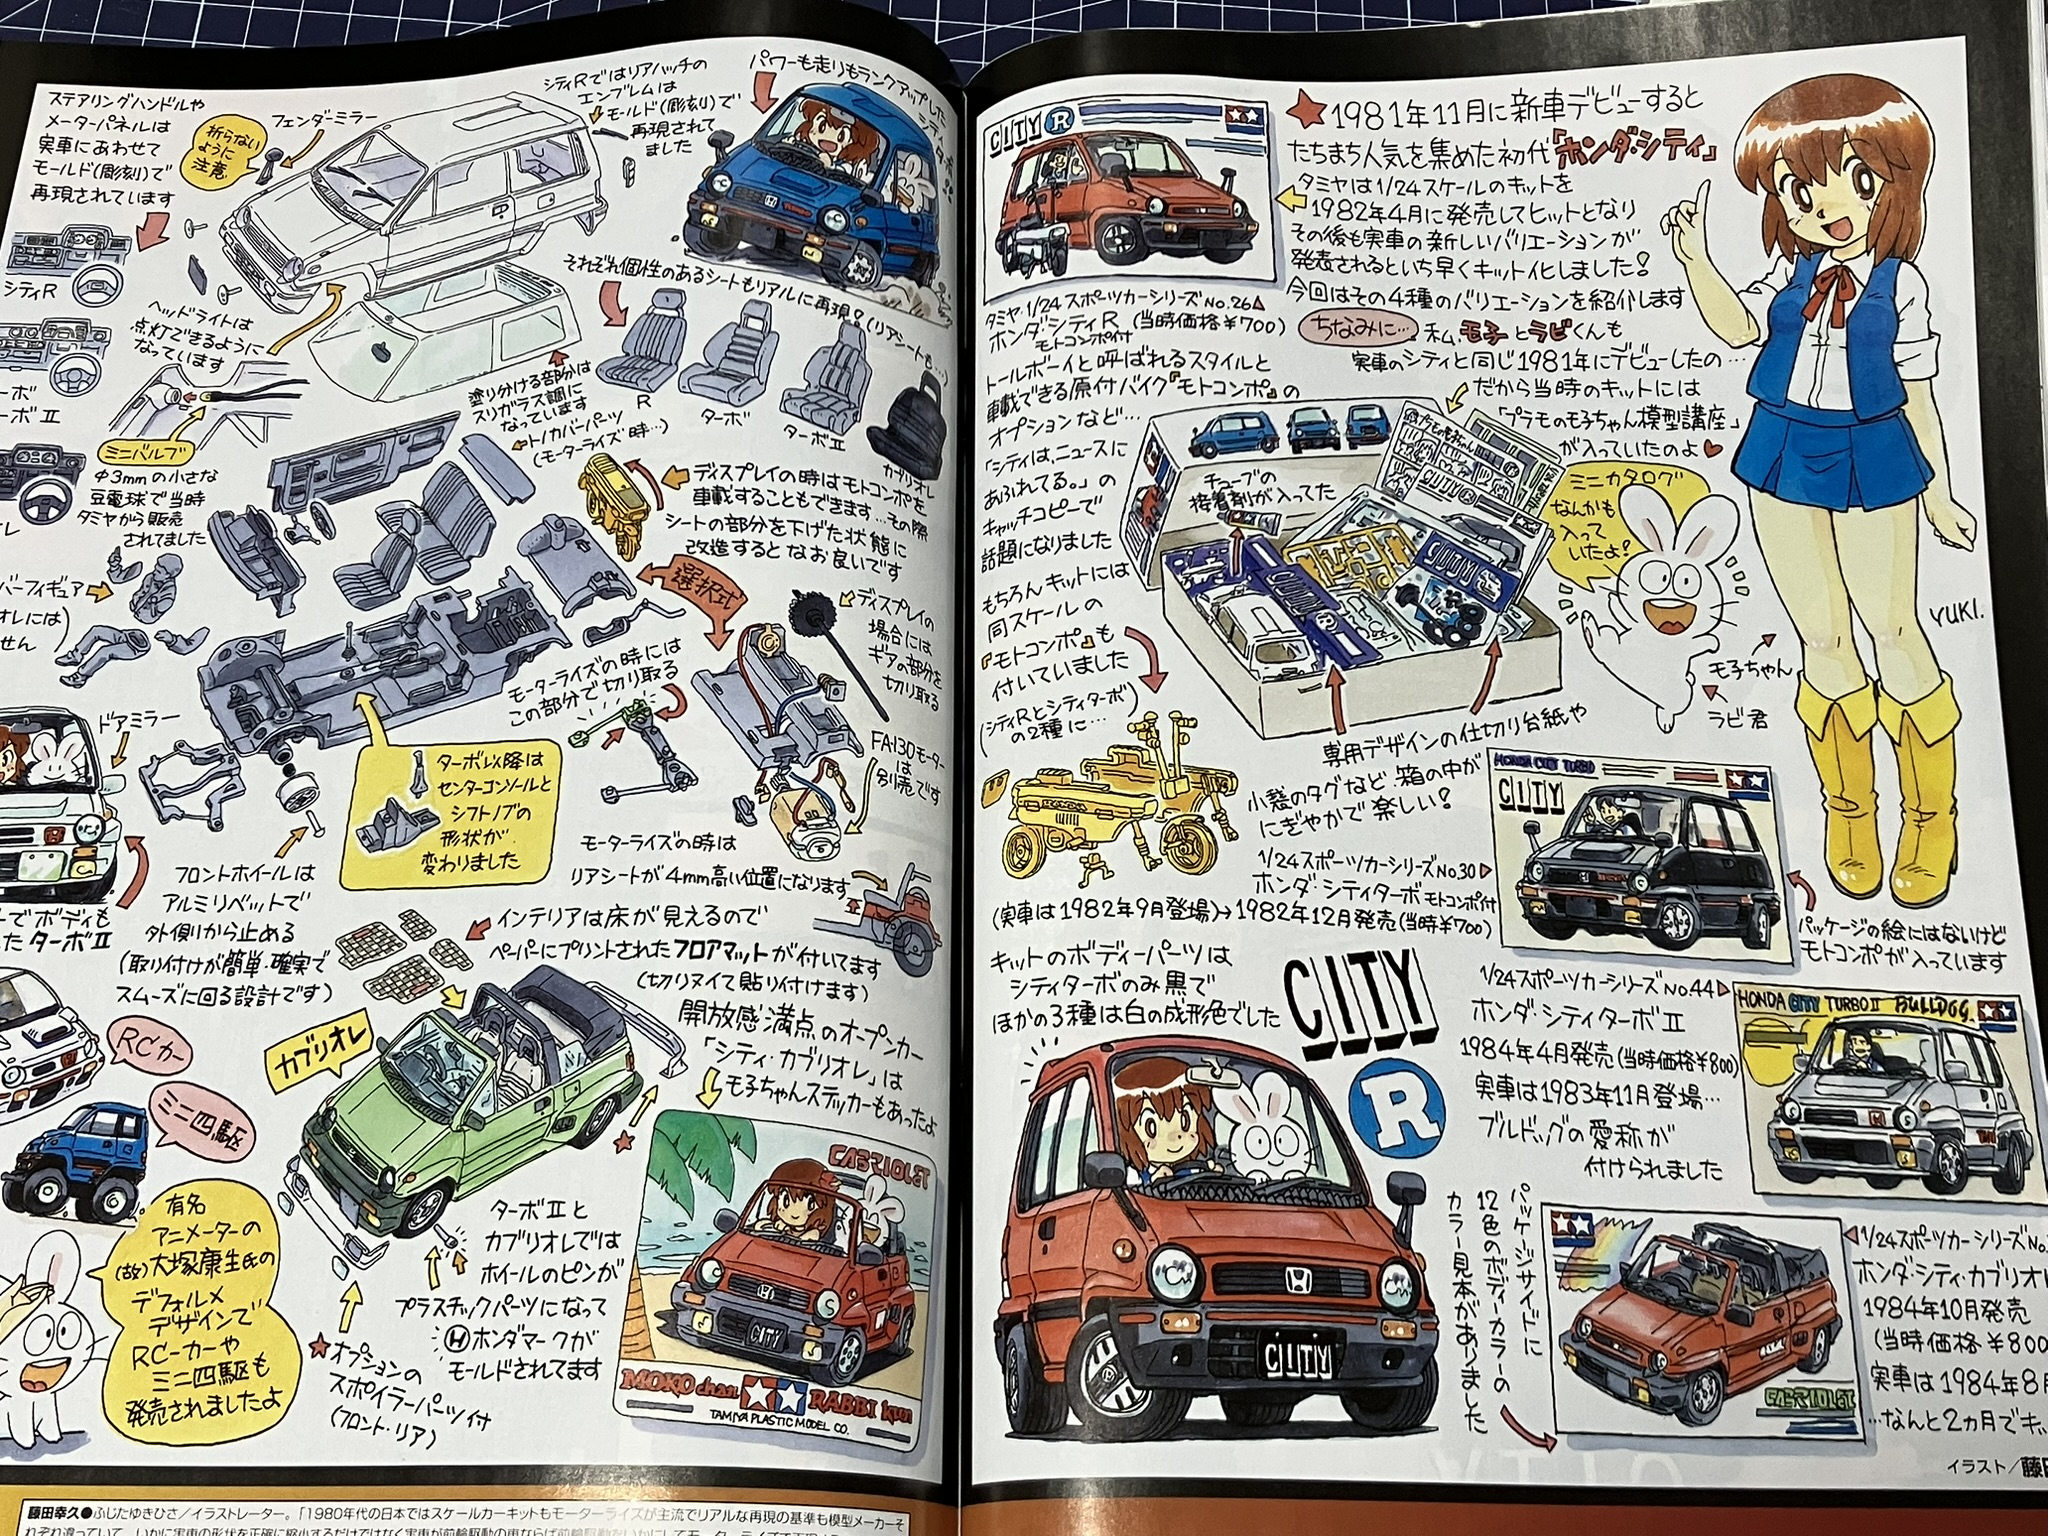 ★1981年11月に新車デビューすると
たちまち人気を集めた初代「ホンダ・シティ」
タミヤは1/24スケールのキットを
1982年4月に発売してヒットとなり
その後も実車の新しいバリエーションが
発表されるといち早くキット化しました!
今回はその4種のバリエーションを紹介します
ちなみに…
私、モ子とラビくんも
実車のシティと同じ1981年にデビューしたの…
だから当時のキットには
「プラモのモ子ちゃん模型講座」
が入っていたのよ♥
CITY R
タミヤ・1/24スポーツカーシリーズNo.26▲
ホンダ・シティR(当時価格¥700)
モトコンポ付
トールボーイと呼ばれるスタイルと
車載できる原付バイク『モトコンポ』の
オプションなど…
「シティは、ニュースに
あふれてる。」の
キャッチコピーで
話題になりました
もちろんキットには
同スケールの
『モトコンポ』も
付いていました
(シティRとシティターボ
の2種に…)
チューブの
接着剤が入ってた
プラモのモ子ちゃん
CITY
CITY
CITY
ミニカタログ
なんかも
入って
いたよ!
YUKI.
モ子ちゃん
ラビ君
専用デザインの仕切り台紙や
小袋のタグなど、箱の中が
にぎやかで楽しい!
HONDA CITY TURBO
CITY
1/24スポーツカーシリーズNo.30▶
ホンダ・シティターボ モトコンポ付
(実車は1982年9月登場)→1982年12月発売(当時¥700)
パッケージの絵にはないけど
モトコンポが入っています
キットのボディーパーツは
シティターボのみ黒で
ほかの3種は白の成形色でした
CITY
R
CITY
1/24スポーツカーシリーズNo.44▶
ホンダ・シティターボⅡ
1984年4月発売(当時価格¥800)
実車は1983年11月登場…
ブルドッグの愛称が
付けられました
HONDA CITY TURBOⅡ BULLDOG.
パッケージサイドに
12色のボディーカラーの
カラー見本がありました
CABRIOLET
◀1/24スポーツカーシリーズNo.
ホンダ・シティ・カブリオレ
1984年10月発売
(当時価格¥800
実車は1984年8月
…なんと2カ月でキッ
イラスト/藤田
ステアリングハンドルや
メーターパネルは
実車にあわせて
モールド(彫刻)で
再現されています
折らない
ように
注意
フェンダーミラー
シティRではリアハッチの
エンブレムは
モールド(彫刻)で
再現されて
ました
パワーも走りもランクアップした
シティR
ーボ
ーボⅡ
レ
ヘッドライトは
点灯できるように
なっています
ミニバルブ
φ3mmの小さな
豆電球で当時
タミヤから販売
されてました
それぞれ個性のあるシートもリアルに再現!(リアシートも…)
R
ターボ
ターボⅡ
カブリオレ
塗り分ける部分は
スリガラス調に
なっています
トノカバーパーツ
(モーターライズ時…)
ディスプレイの時はモトコンポを
車載することもできます…その際
シートの部分を下げた状態に
改造するとなお良いです
バーフィギュア
オレには)
せん
選択式
ディスプレイの
場合には
ギアの部分を
切り取る
モーターライズの時には
この部分で切り取る
FA-130モーター
は
別売です
ドアミラー
ターボ以降は
センターコンソールと
シフトノブの
形状が
変わりました
モーターライズの時は
リアシートが4mm高い位置になります
フロントホイールは
アルミリベットで
外側から止める
(取り付けが簡単・確実で
スムーズに回る設計です)
ーでボディも
したターボⅡ
インテリアは床が見えるので
ペーパーにプリントされたフロアマットが付いてます
(切りヌイて貼り付けます)
開放感満点のオープンカー
「シティ・カブリオレ」は
モ子ちゃんステッカーもあったよ
カブリオレ
RCカー
ミニ四駆
有名
アニメーターの
(故)大塚康生氏の
デフォルメ
デザインで
RCーカーや
ミニ四駆も
発売されましたよ
★オプションの
スポイラーパーツ付
(フロント・リア)
ターボⅡと
カブリオレでは
ホイールのピンが
プラスチックパーツになって
Hホンダマークが
モールドされてます
CABRIOLET
CITY
MOKO chan
RABBI kun
TAMIYA PLASTIC MODEL CO.
藤田幸久●ふじたゆきひさ/イラストレーター。「1980年代の日本ではスケールカーキットもモーターライズが主流でリアルな再現の基準も模型メーカーそ